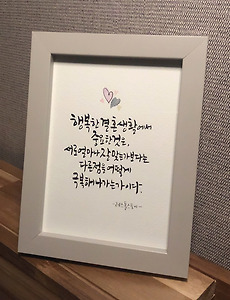 행복한 결혼 생활에서
중요한 것은,
서로 얼마나 잘 맞는가보다는
다른점을 어떻게
극복해나가는가이다.